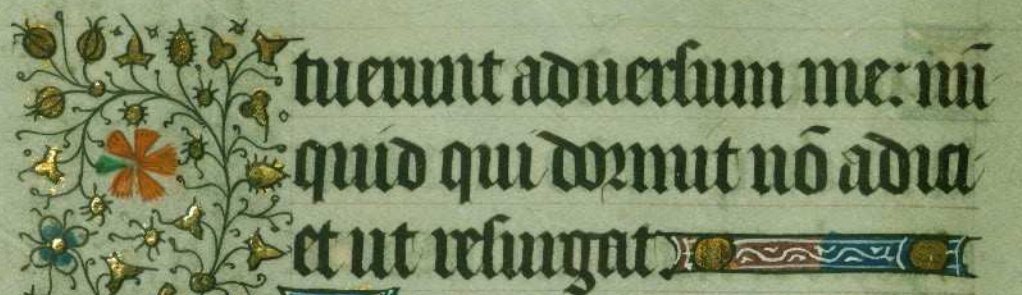 tuerunt aduersum me: nū
quid qui dormit nō adici
et ut resurgat